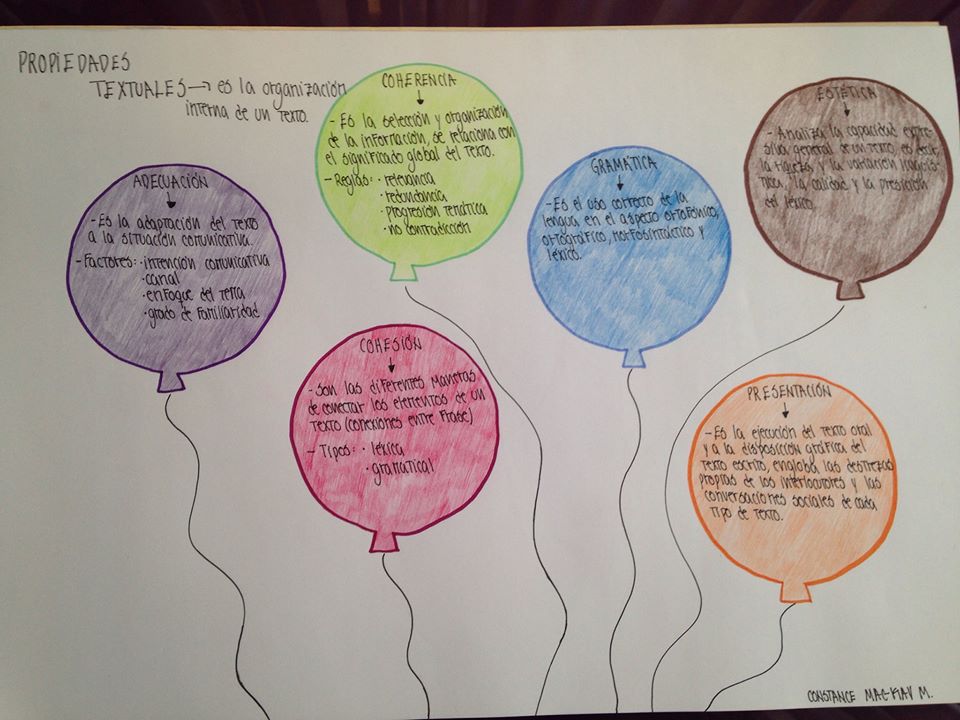 PROPIEDADES
TEXTUALES → es la organización
interna de un texto.
ADECUACIÓN
- Es la adaptación del texto
a la situación comunicativa.
- Factores: · intención comunicativa
· canal
· enfoque del tema
· grado de familiaridad
COHERENCIA
- Es la selección y organización
de la información, se relaciona con
el significado global del texto.
- Reglas: · relevancia
· redundancia
· progresión temática
· no contradicción
COHESIÓN
- Son las diferentes maneras
de conectar los elementos de un
texto (conexiones entre frase)
- Tipos: · léxica
· gramatical
GRAMÁTICA
- Es el uso correcto de la
lengua en el aspecto ortofónico,
ortográfico, morfosintáctico y
léxico.
ESTÉTICA
- Analiza la capacidad expre-
siva general de un texto, es decir,
la riqueza y la variación lingüís-
tica, la calidad y la presición
del léxico.
PRESENTACIÓN
- Es la ejecución del texto oral
y a la disposición gráfica del
texto escrito, engloba las destrezas
propias de los interlocutores y las
conversaciones sociales de cada
tipo de texto.
CONSTANCE M.